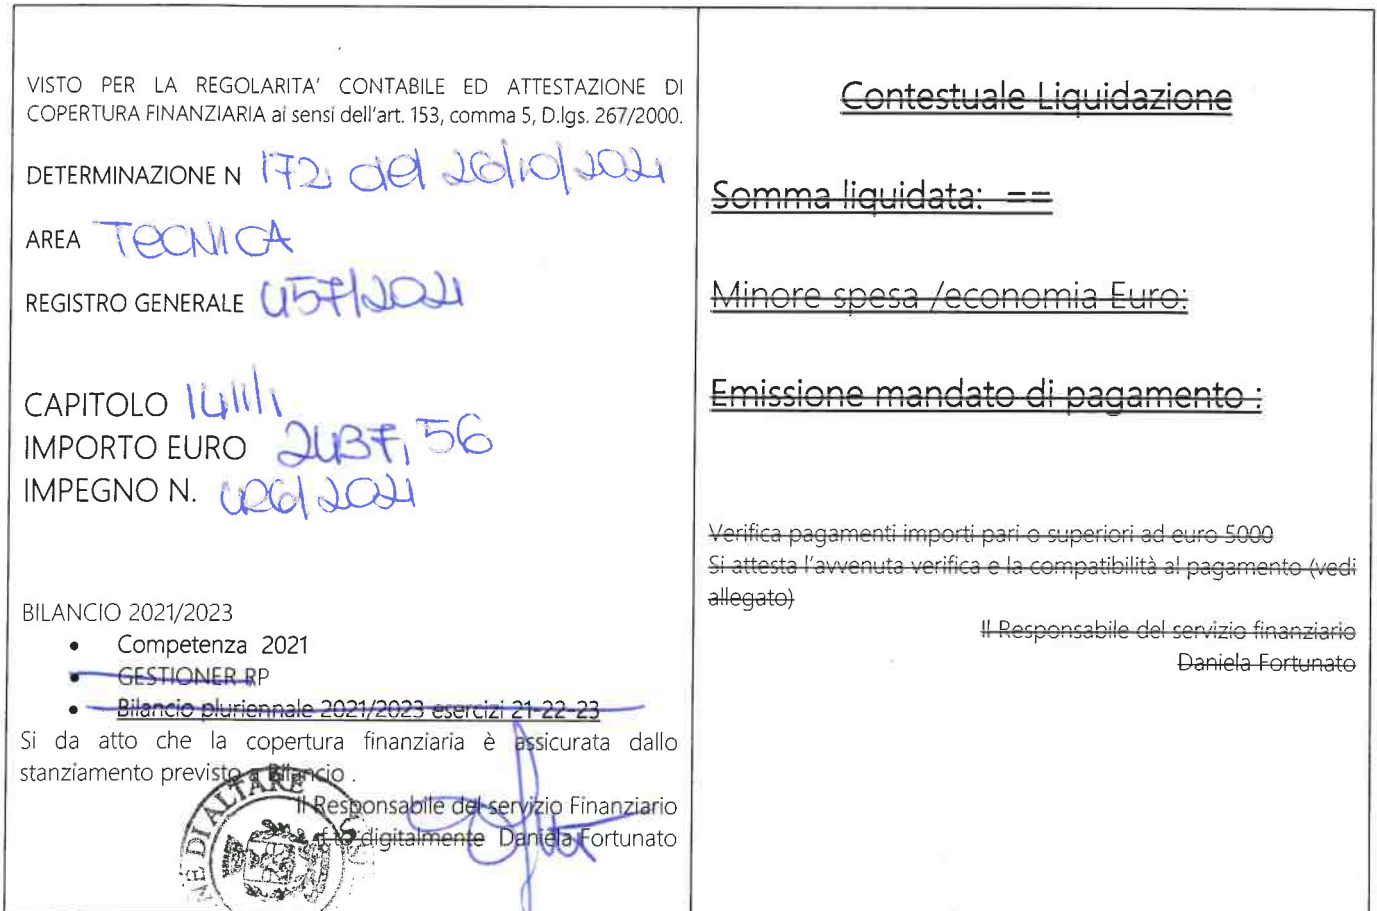 VISTO PER LA REGOLARITA' CONTABILE ED ATTESTAZIONE DI
COPERTURA FINANZIARIA ai sensi dell'art. 153, comma 5, D.lgs. 267/2000.
DETERMINAZIONE N 172 del 26/10/2021
AREA TECNICA
REGISTRO GENERALE 457/2021
CAPITOLO 1411/1
IMPORTO EURO 2437,56
IMPEGNO N. 426/2021
BILANCIO 2021/2023
• Competenza 2021
• GESTIONER RP
• Bilancio pluriennale 2021/2023 esercizi 21-22-23
Si da atto che la copertura finanziaria è assicurata dallo
stanziamento previsto a Bilancio .
Il Responsabile del servizio Finanziario
f.to digitalmente Daniela Fortunato
ME DI ALTARE
Contestuale Liquidazione
Somma liquidata: ==
Minore spesa /economia Euro:
Emissione mandato di pagamento :
Verifica pagamenti importi pari o superiori ad euro 5000
Si attesta l'avvenuta verifica e la compatibilità al pagamento (vedi
allegato)
Il Responsabile del servizio finanziario
Daniela Fortunato